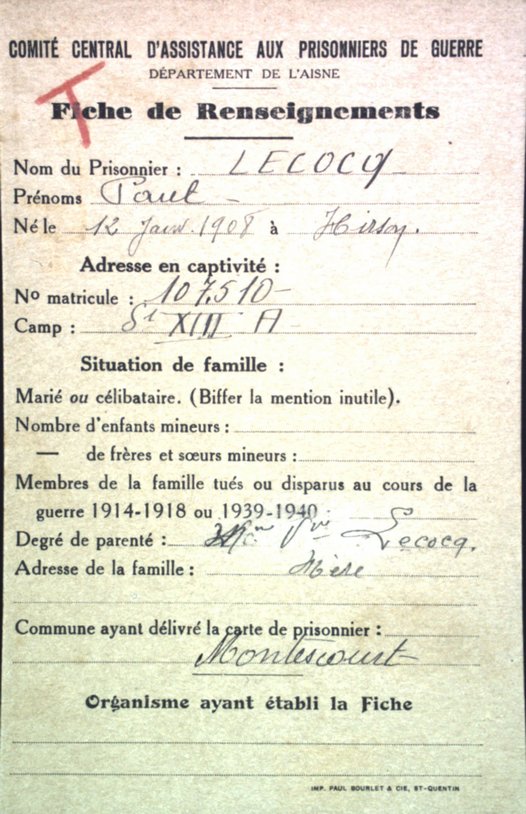 COMITÉ CENTRAL D'ASSISTANCE AUX PRISONNIERS DE GUERRE
DÉPARTEMENT DE L'AISNE
T
Fiche de Renseignements
Nom du Prisonnier : LECOCQ
Prénoms Paul
Né le 12 Janv. 1908 à Hirson.
Adresse en captivité :
No matricule : 107.510
Camp : St XIII A
Situation de famille :
Marié ou célibataire. (Biffer la mention inutile).
Nombre d'enfants mineurs :
— de frères et sœurs mineurs :
Membres de la famille tués ou disparus au cours de la
guerre 1914-1918 ou 1939-1940 :
Degré de parenté : Vve Lecocq.
Adresse de la famille : Mère
Commune ayant délivré la carte de prisonnier :
Montescourt
Organisme ayant établi la Fiche
IMP. PAUL BOURLET & CIE, ST-QUENTIN